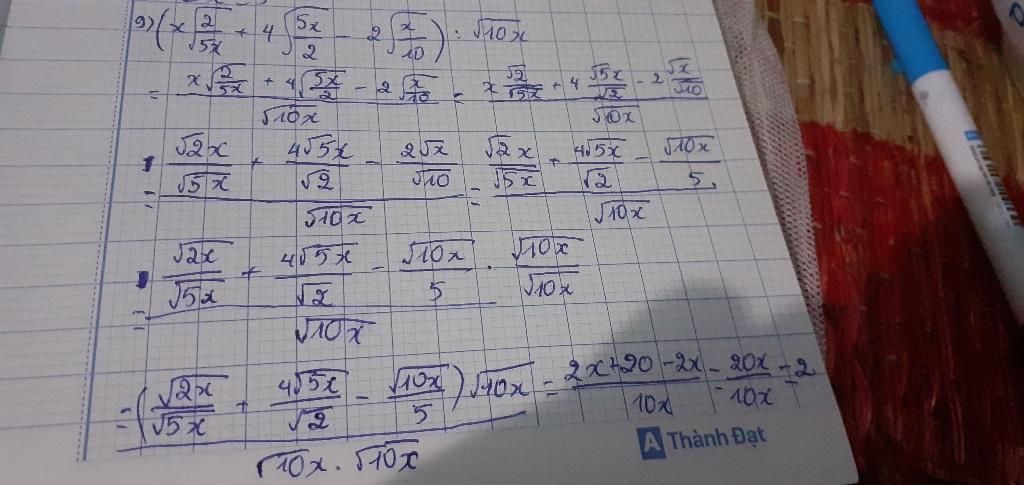 9) (x√(2/5x) + 4√(5x/2) - 2√(x/10)) : √10x
= (x√(2/5x) + 4√(5x/2) - 2√(x/10)) / √10x = (x √2/√5x + 4 √5x/√2 - 2 √x/√10) / √10x
= (√2x/√5x + 4√5x/√2 - 2√x/√10) / √10x = (√2x/√5x + 4√5x/√2 - √10x/5) / √10x
= (√2x/√5x + 4√5x/√2 - √10x/5) / √10x . √10x/√10x
= (√2x/√5x + 4√5x/√2 - √10x/5) √10x / √10x . √10x = (2x + 20 - 2x)/10x = 20x/10x = 2
Thành Đạt